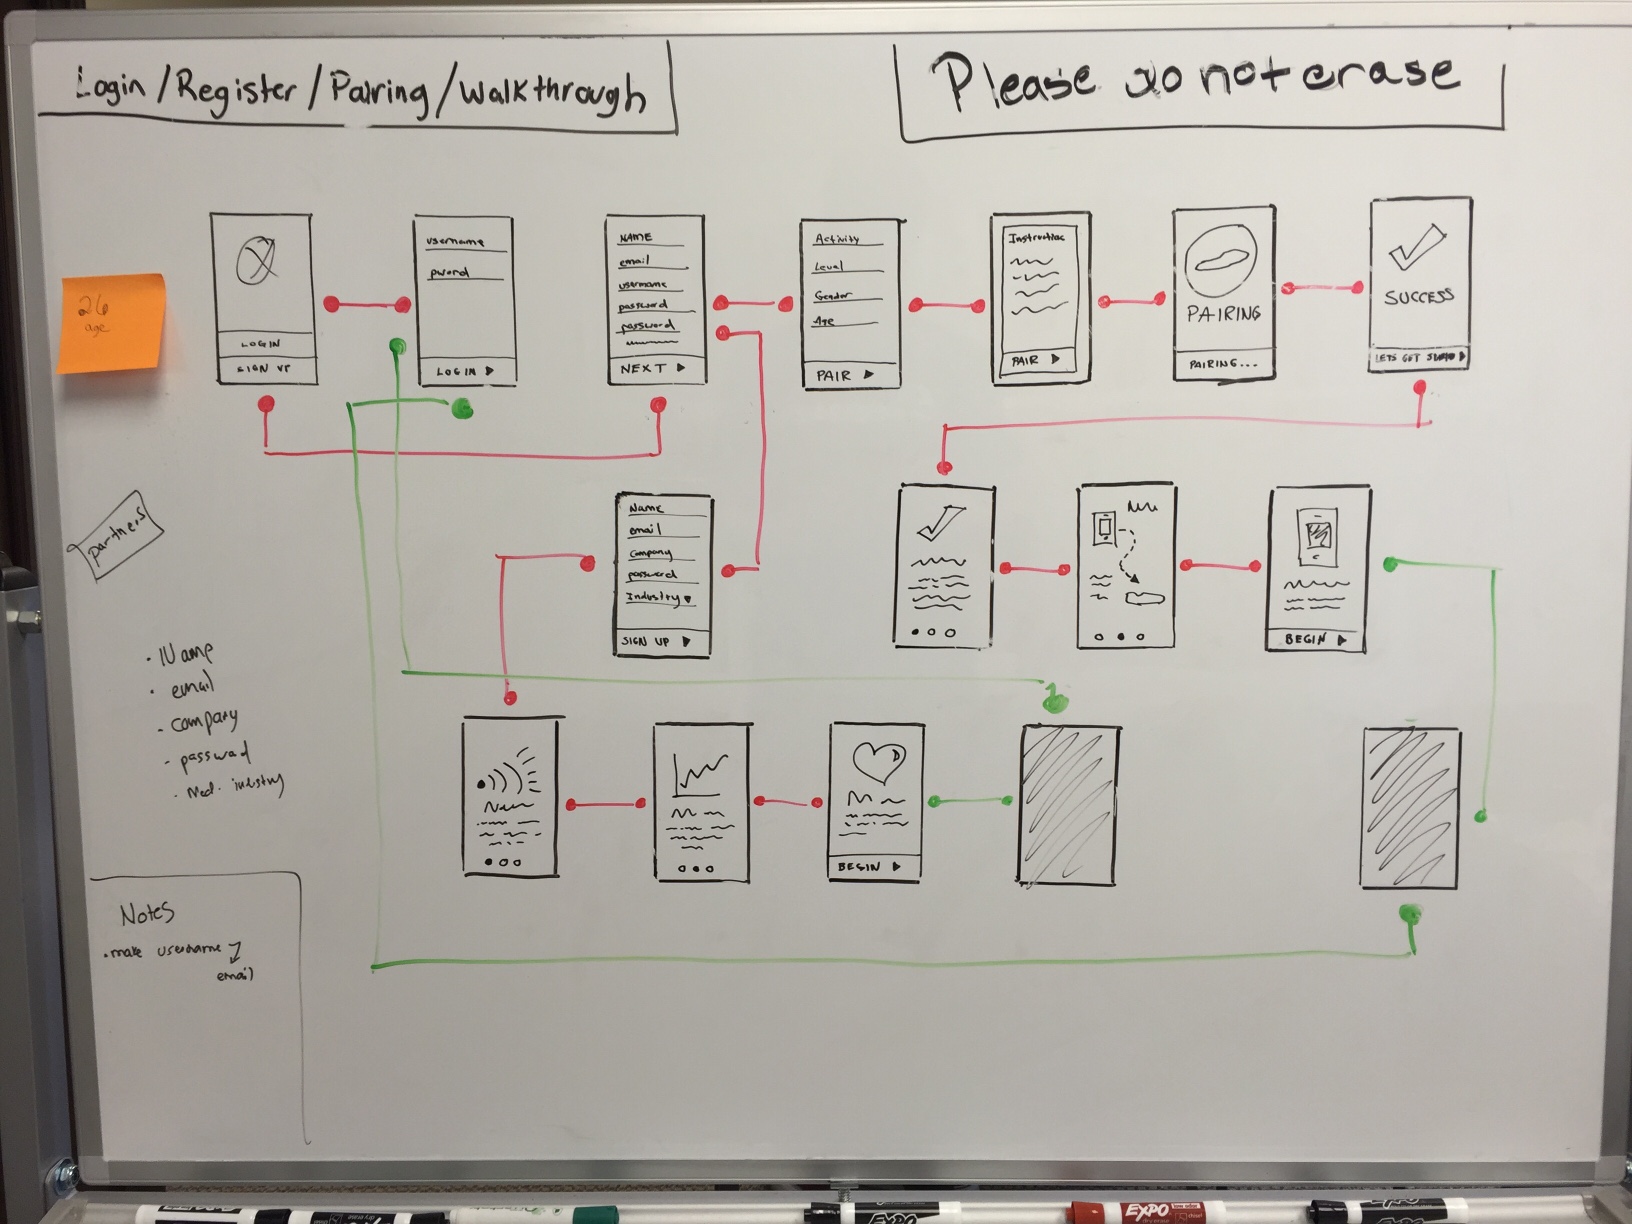 Login/Register/Pairing/Walkthrough
Please do not erase
26
age
LOGIN
SIGN UP
username
pword
LOGIN
NAME
email
username
password
password
NEXT
Activity
Level
Gender
Age
PAIR
Instruction
PAIR
PAIRING
PAIRING...
SUCCESS
LETS GET
partners
Name
email
Company
password
Industry
SIGN UP
BEGIN
email
company
password
industry
BEGIN
Notes
make username
email
EXPO
EXPO
EXPO